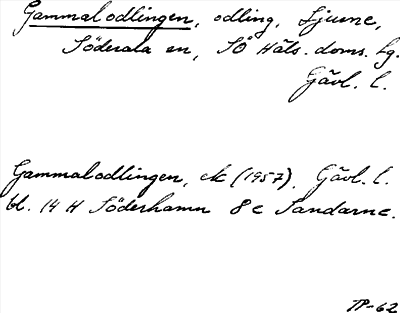 Gammalodlingen, odling, Ljusne,
Söderala sn, SÖ Häls. doms. tg.
Gävl. l.
Gammalodlingen, ek (1957), Gävl. l.
bl. 14 H Söderhamn 8 e Sandarne.
TP-62